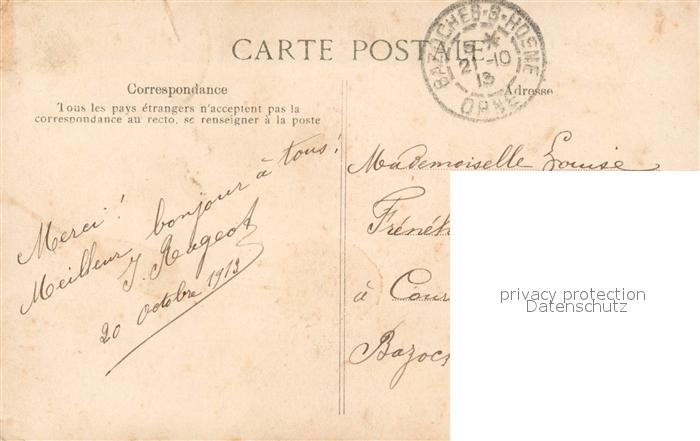 CARTE POSTALE
BAZOCHES-S-HOSNE
21-10
13
ORNE
Correspondance
Adresse
Tous les pays étrangers n'acceptent pas la
correspondance au recto, se renseigner à la poste
Merci!
Meilleur bonjour à tous!
20 octobre 1913
Mademoiselle Louise
Frénéh
à Cour
Bazoc
privacy protection
Datenschutz